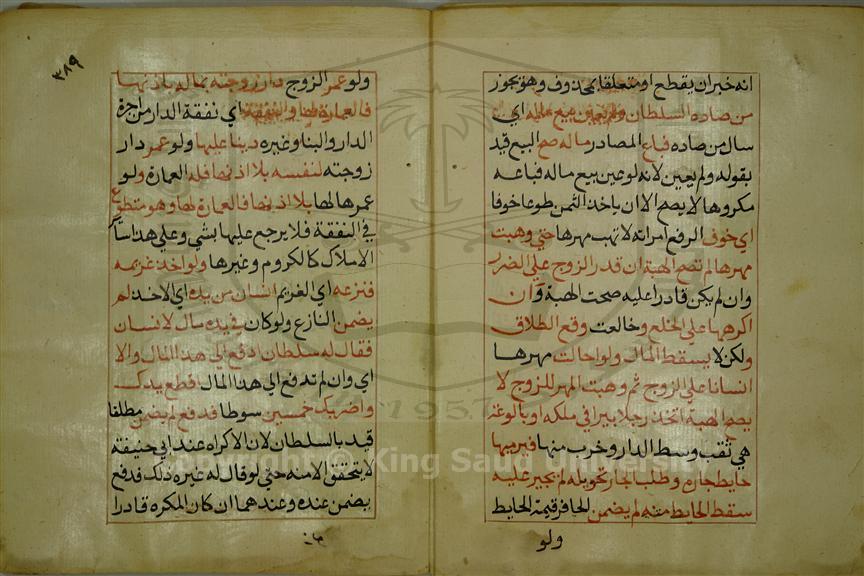 انه خبر ان يقطع او متعلقا بمحذوف وهو يجوز
من صاده السلطان ولم يعين بيع ماله اي
سال من صاده فباع المصادر ماله صح البيع قيد
بقوله ولم يعين لانه لو عين بيع ماله فباعه
مكروها لا يصح الا ان ياخذ الثمن طوعا خوفا
اي خوف الرفع امراته لا تهب مهرها حتى وهبت
مهرها لم تصح الهبة ان قدر الزوج علي الضرر
وان لم يكن قادرا عليه صحت الهبة وان
اكرهها على الخلع وخالعت وقع الطلاق
ولكن لا يسقط المال ولو احالت مهرها
انسانا علي الزوج ثم وهبت المهر للزوج لا
يصح الهبة اتخذ رجل بيرا في ملكه او بالوعة
هي ثقب وسط الدار وخرب منها فيرميها
حايط جاره وطلب الجار تحويله لم يجبر عليه
سقط الحايط منه لم يضمن الحافر قيمة الحايط
ولو
٣٨٩
ولو عمر الزوج دار زوجته بماله باذنها
فالعمارة لها والنفقة اي نفقة الدار من اجرة
الدار والبنا وغيره دينا عليها ولو عمر دار
زوجته لنفسه بلا اذنها فله العمارة ولو
عمرها لها بلا اذنها فالعمارة لها وهو متطوع
في النفقة فلا يرجع عليها بشي وعلي هذا سائر
الاملاك كالكروم وغيرها ولو اخذ غريمه
فنزعه اي الغريم انسان من يده اي الاخذ لم
يضمن النازع ولو كان في يده مال لانسان
فقال له سلطان ادفع الي هذا المال والا
اي وان لم تدفع الي هذا المال اقطع يدك
واضربك خمسين سوطا فدفع لم يضمن مطلقا
قيد بالسلطان لان الاكراه عند ابي حنيفة
لا يتحقق الا منه حتي لو قال له غيره ذلك فدفع
يضمن عنده وعندهما ان كان المكره قادرا
© King Saud University
1957